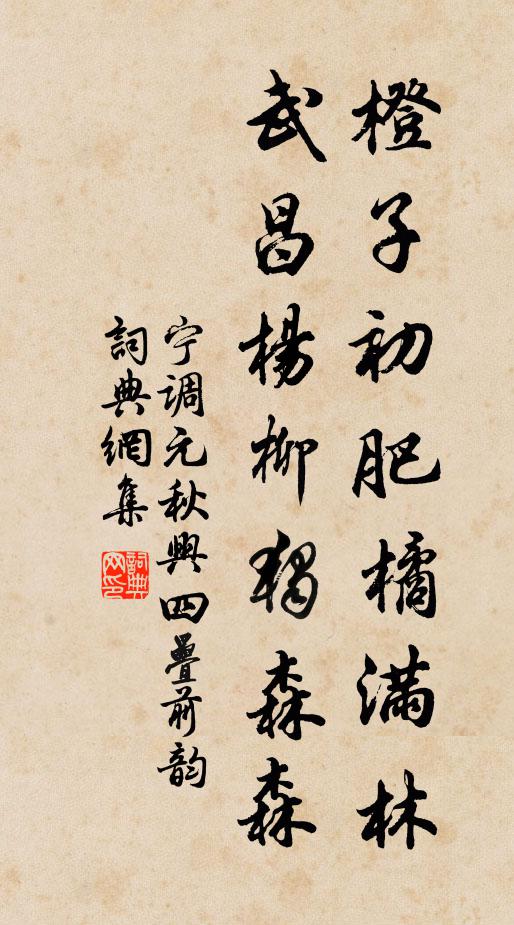 橙子初肥橘满林
武昌楊柳獨森森
宁調元秋興四疊前韵
詞典網集
詞典网印